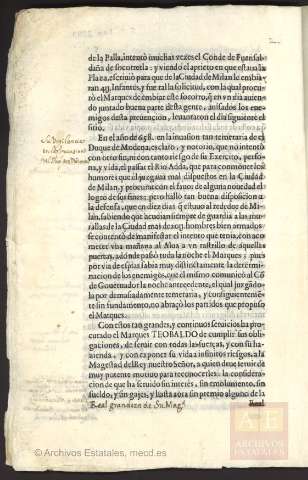 de la Palla, intentò muchas vezes el Conde de Fuensal
daña de socorrerla: y viendo el aprieto en que estaua la
Plaza, escriuiò para que de la Ciudad de Milan le embia
ran Infantes, y fue tal la solicitud, con la qual procu-
rò el Marques de embiar este socorro, que en vn dia auien
do juntado buena parte desta gente, auisados los ene-
migos desta preuencion, leuantaron el dia siguiente el
sitio.
En el año de 658. en la inuasion tan temeraria de el
Duque de Modena, es claro, y notorio, que no intentò
con otro fin, ni con tanto riesgo de su Exercito, perso-
na, y vida, el passar el Rio Adda, que para conmouer los
humores que èl juzgaua mal dispuestos en la Ciudad
de Milan, y procurar con el fauor de alguna nouedad el
logro de sus fines; pero hallò tan buena disposicion a
la defensa, que en diez dias que estuuo al rededor de Mi-
lan, sabiendo que acudian siempre de guardia a las mu-
rallas de la Ciudad mas de hombres bien armados,
se contentò de manifestar el intento que traìa, con aco-
meter vna mañana al Alua a vn rastrillo de aquellas
puertas, adonde passò toda la noche el Marques; pues
por via de espias sabia muy distintamente la determina-
cion de los enemigos, que el mismo comunicò al Cõ
de Gouernador la noche antecedente, el qual juzgàdo-
la por demasiadamente temeraria, y consiguientemen-
te sin fundamento, no abraçò los partidos que propuso
el Marques.
Con estos tan grandes, y continuos seruicios ha pro-
curado el Marques TEOBALDO de cumplir sus obli-
gaciones, de seruir con todas las fuerças, y con su ha-
zienda, y con exponer su vida a infinitos riesgos, a la
Magestad del Rey nuestro Señor, a quien deue seruir de
muy potente motiuo para reconocerles, la considera-
cion de que ha seruido sin interès, sin emolumento, sin
sueldo, y sin gajes, y hasta aora sin premio alguno de la
Real grandeza de Su Mag.d
Real
ARCHIVOS
ESTATALES
© Archivos Estatales, mecd.es